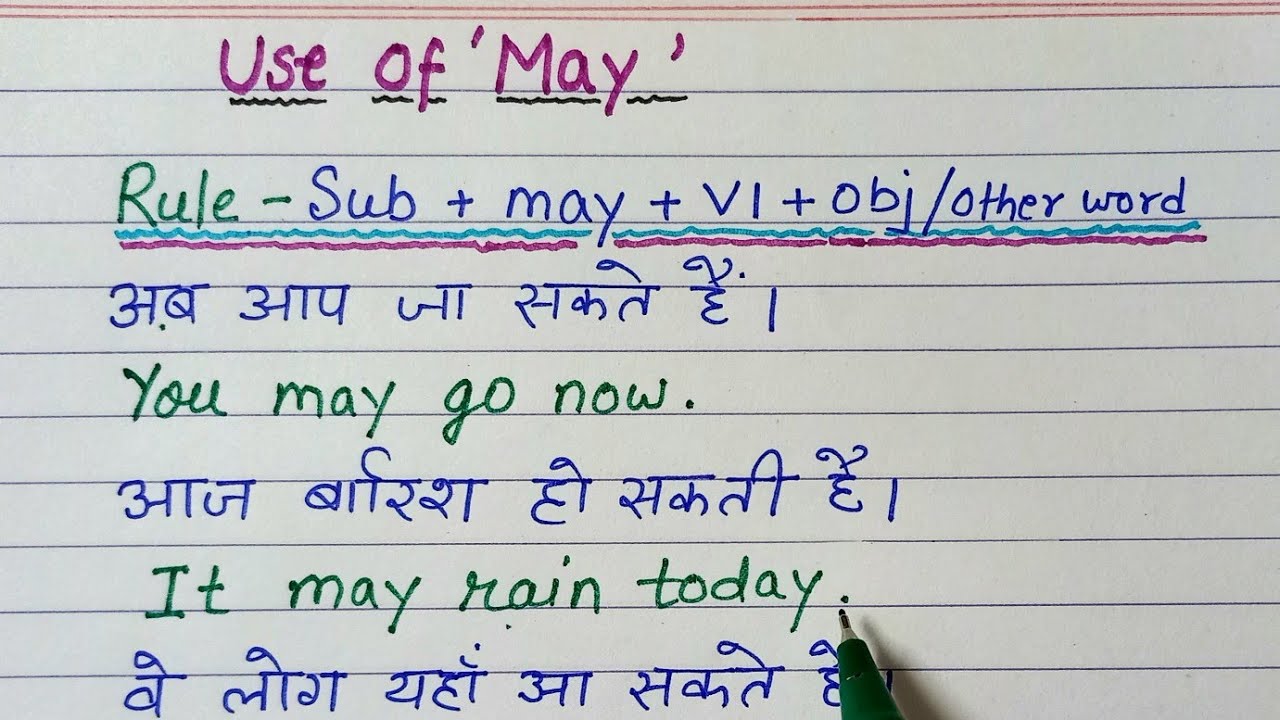 Use of 'May'
Rule - Sub + may + V1 + Obj/other word
अब आप जा सकते हैं।
You may go now.
आज बारिश हो सकती है।
It may rain today.
वे लोग यहाँ आ सकते